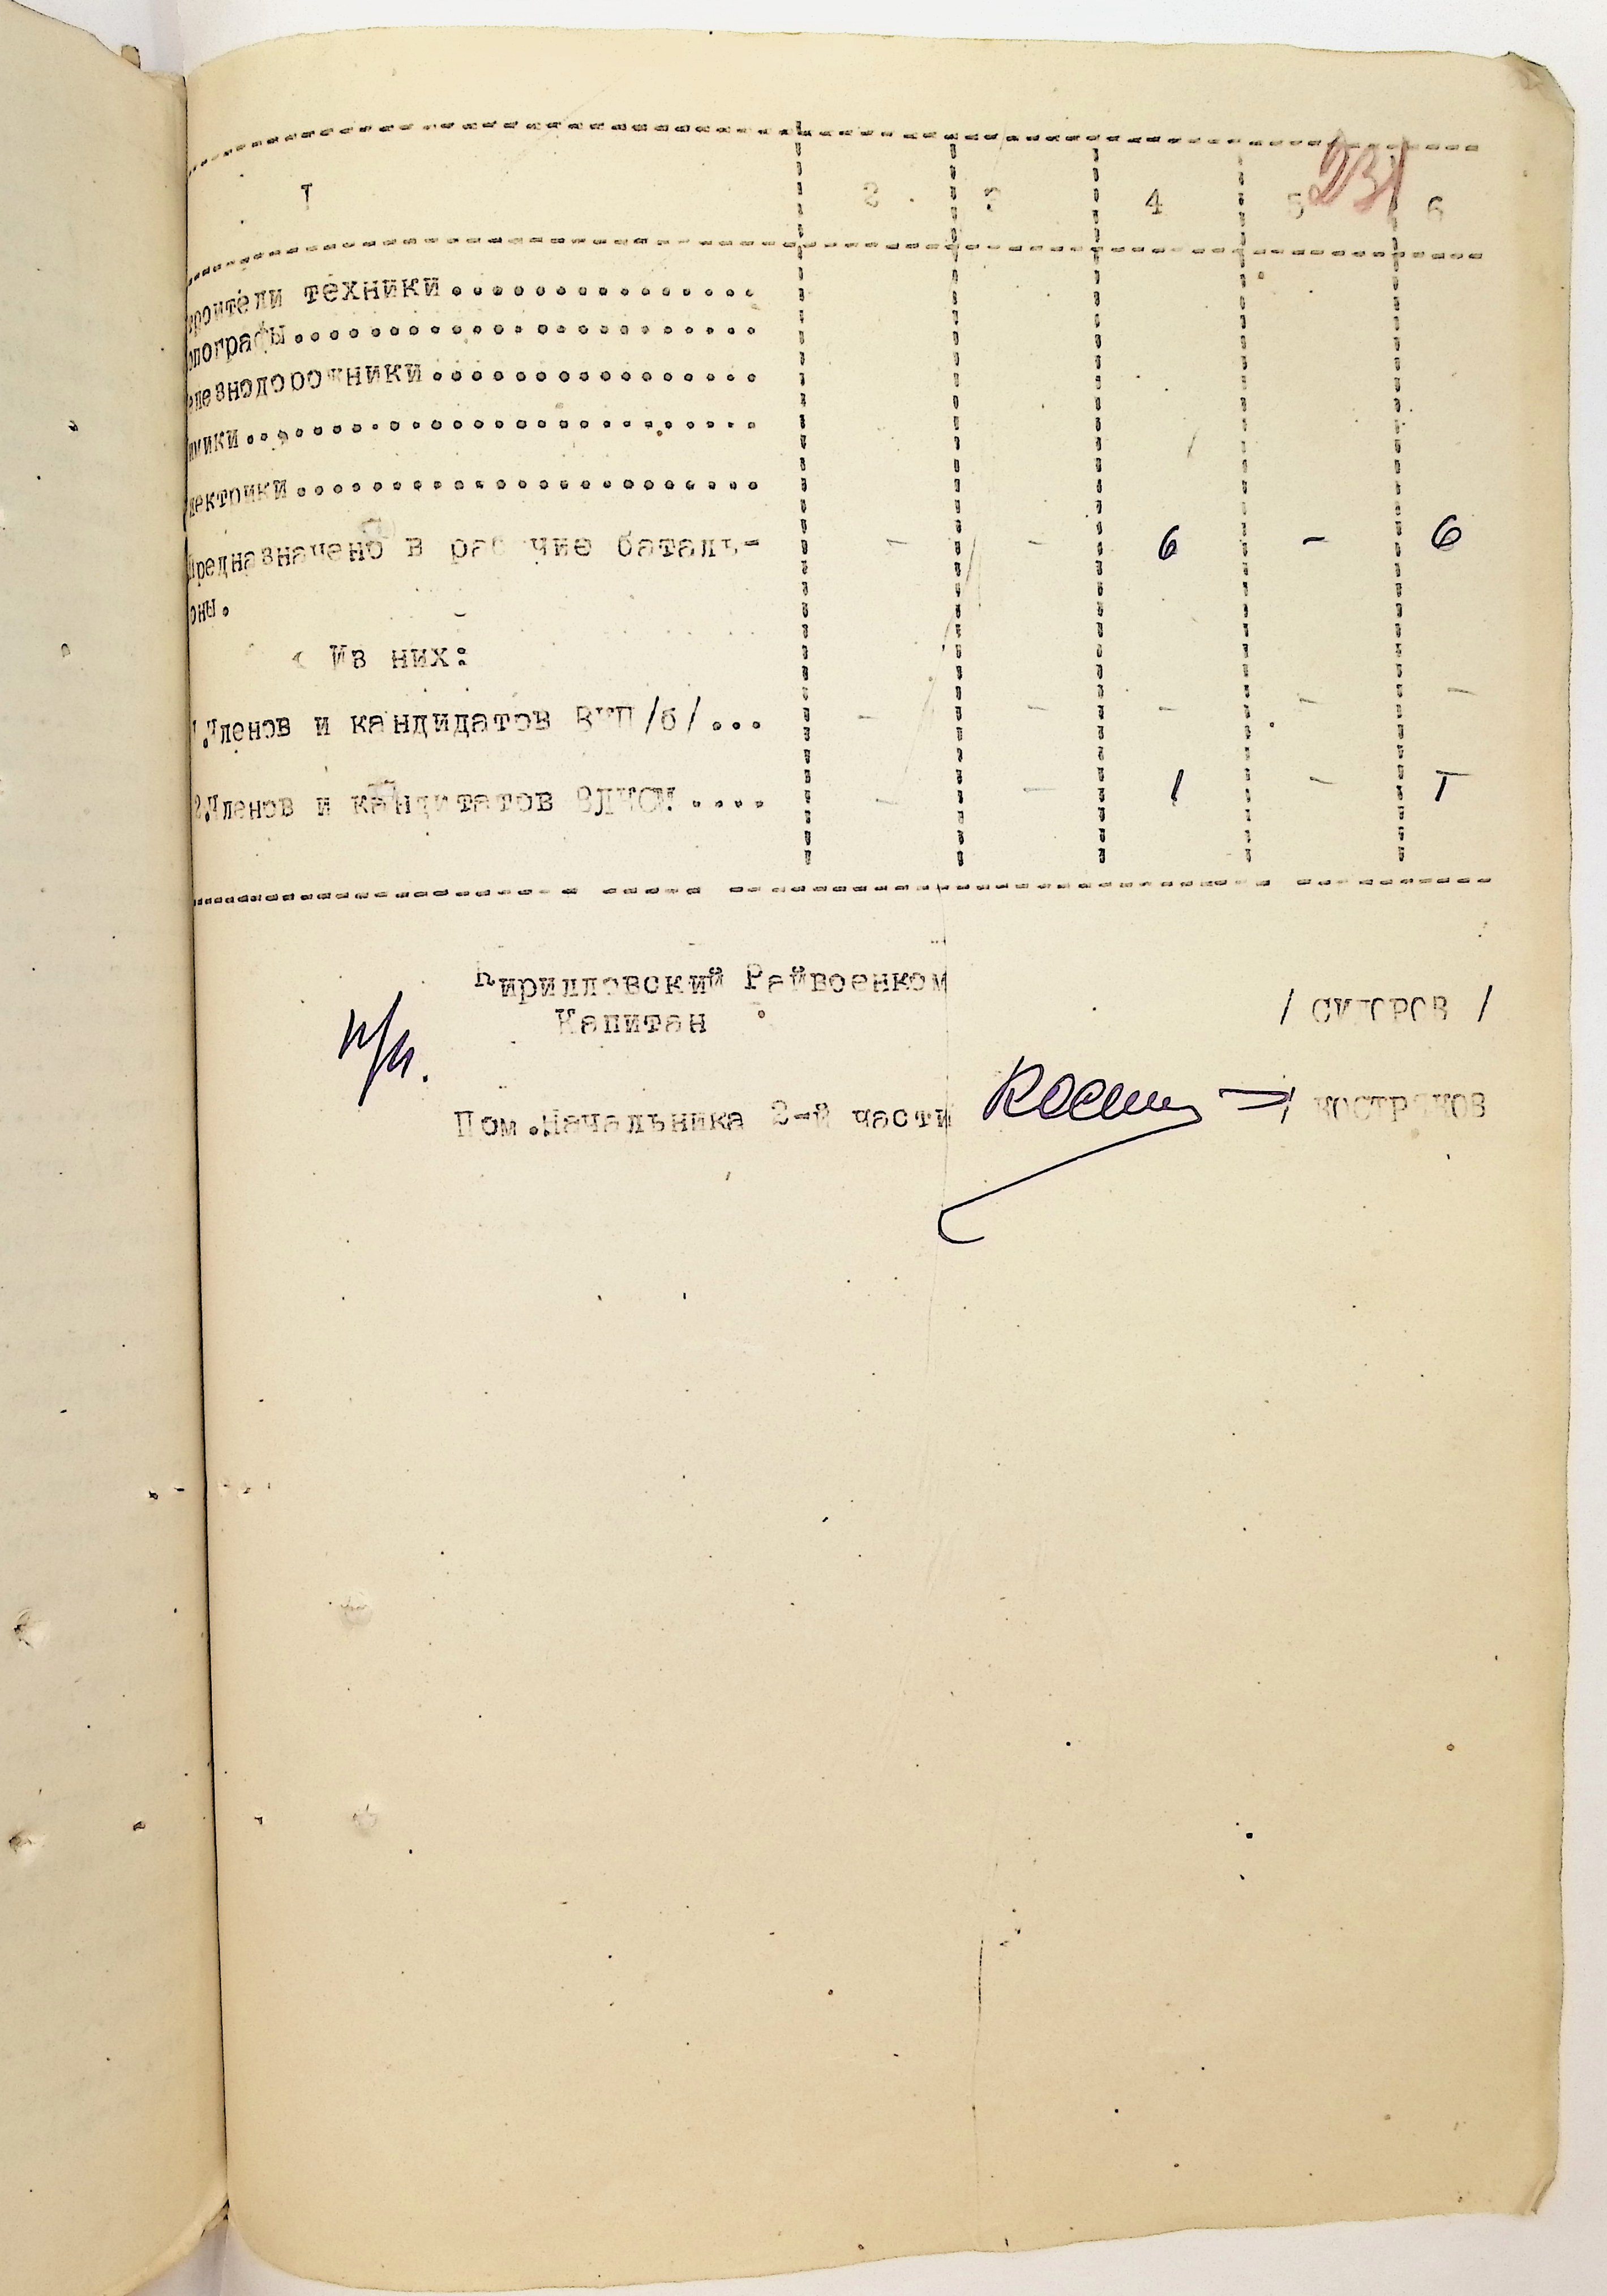 231
I 2 3 4 5 6
роители техники
пографы
лезнодорожники
мики
лектрики
Предназначено в рабочие баталь- - - 6 - 6
оны.
Из них:
1.Членов и кандидатов ВКП/б/... - - - - -
2.Членов и кандитатов ВЛКСМ.... - - 1 - I
Кирилловский Райвоенком
Капитан / СИДОРОВ /
п/п.
Пом.Начальника 2-й части / КОСТРЮКОВ